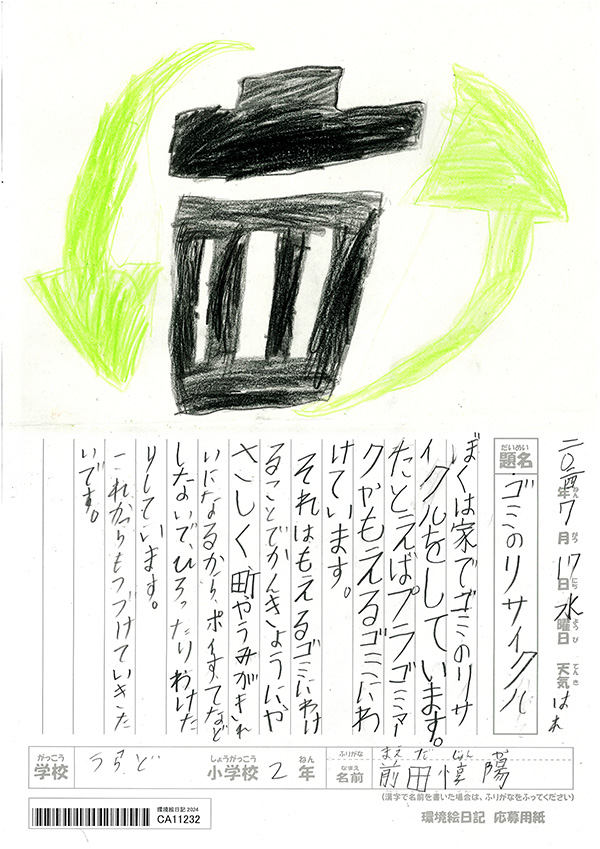 二〇二四年7月17日水曜日 天気はれ
ねん がつ にち ようび てんき
だいめい
題名 ゴミのリサイクル
ぼくは家でゴミのリサ
イクルをしています。
たとえばプラゴミマー
クやもえるゴミにわ
けています。
それはもえるゴミにわけ
ることでかんきょうにや
さしく、町やうみがきれ
いになるから、ポイすてなど
しないで、ひろったりわけた
りしています。
これからもつづけていきた
いです。
がっこう しょうがっこう ねん ふりがな まえ だ じゅん や
学校 うらど 小学校 2 年 なまえ 名前 前田惇陽
(漢字で名前を書いた場合は、ふりがなをふってください)
環境絵日記 応募用紙
環境絵日記2024
CA11232